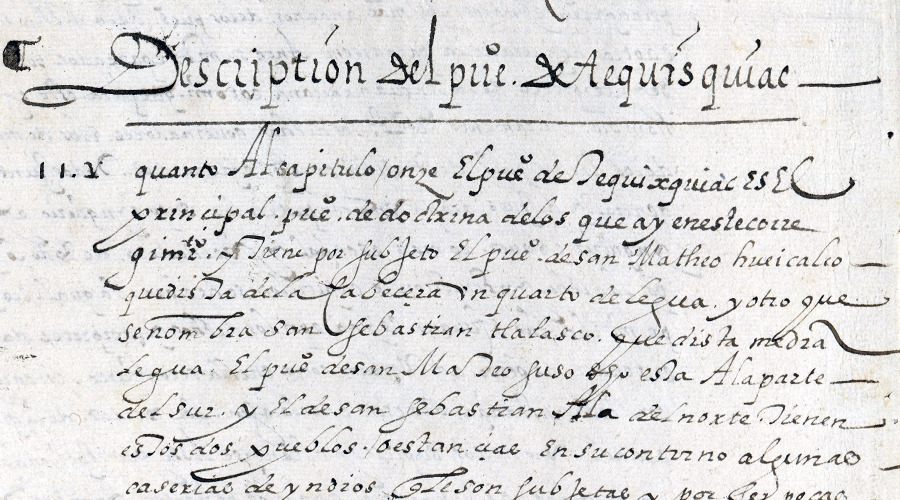 Descriptión del puº. de Tequisquiac
11. Y quanto Al capitulo / onze El pueº de Tequixquiac ES El
principal. pueº. de doctrina delos que ay enestecorre
gimitº. y Tiene por subJeto El pueº. desan Matheo hueicalco
quedisTa dela Cabecera un quarto delegua. y otro que
senombra san sebastian tlalasco. que dista media
legua. El pueº desan MaTeo suso dho esta Alaparte
delsur. y El desan sebastian Ala delnorte Tienen
esTos dos pueblos. / oestançias Ensucontorno algunas
caserias de yndios que son subJetas y por ser pocas